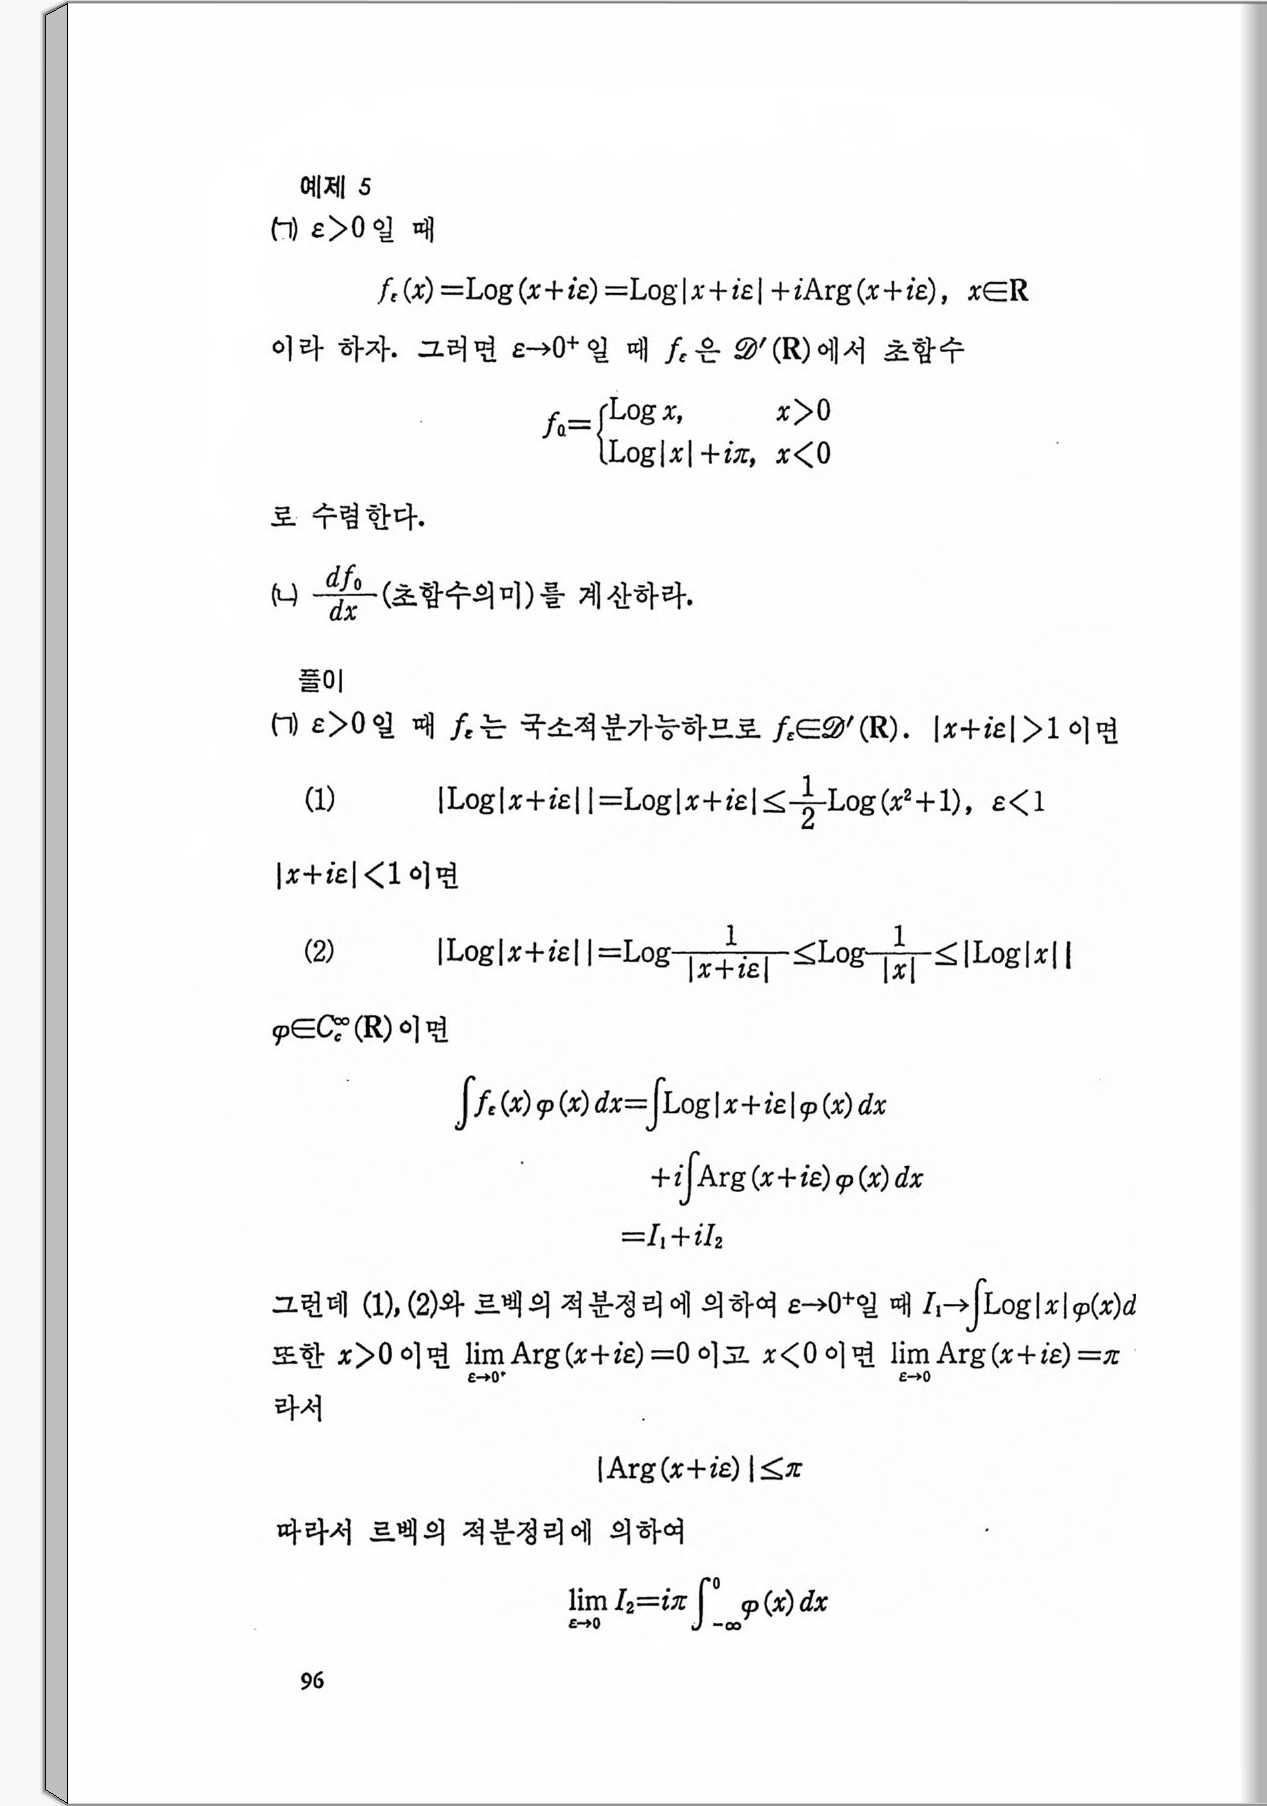 예제 5
(ㄱ) ε>0일 때
fε(x)=Log(x+iε)=Log|x+iε|+iArg(x+iε), x∈R
이라 하자. 그러면 ε→0⁺일 때 fε은 𝒟′(R)에서 초함수
f₀={Log x, x>0
Log|x|+iπ, x<0
로 수렴한다.
(ㄴ) df₀/dx (초함수의미)를 계산하라.
풀이
(ㄱ) ε>0일 때 fε는 국소적분가능하므로 fε∈𝒟′(R). |x+iε|>1이면
(1) |Log|x+iε||=Log|x+iε|≤1/2 Log(x²+1), ε<1
|x+iε|<1이면
(2) |Log|x+iε||=Log 1/|x+iε| ≤Log 1/|x| ≤|Log|x||
φ∈C_c^∞(R)이면
∫fε(x)φ(x)dx=∫Log|x+iε|φ(x)dx
+i∫Arg(x+iε)φ(x)dx
=I₁+iI₂
그런데 (1), (2)와 르벡의 적분정리에 의하여 ε→0⁺일 때 I₁→∫Log|x|φ(x)d
또한 x>0이면 lim_{ε→0⁺} Arg(x+iε)=0이고 x<0이면 lim_{ε→0} Arg(x+iε)=π
라서
|Arg(x+iε)|≤π
따라서 르벡의 적분정리에 의하여
lim_{ε→0} I₂=iπ∫_{-∞}^{0} φ(x)dx
96